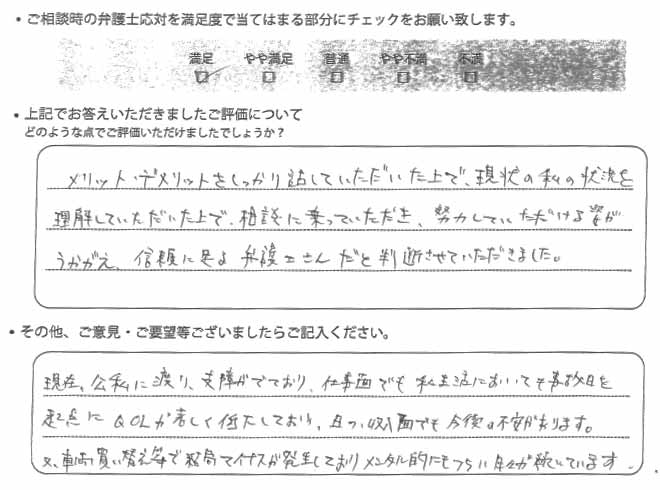 ・ご相談時の弁護士応対を満足度で当てはまる部分にチェックをお願い致します。
満足 やや満足 普通 やや不満 不満
・上記でお答えいただきましたご評価について
どのような点でご評価いただけましたでしょうか？
メリット・デメリットをしっかり話していただいた上で、現状の私の状況を
理解していただいた上で、相談に乗っていただき、努力していただける姿が
うかがえ、信頼に足る弁護士さんだと判断させていただきました。
・その他、ご意見・ご要望等ございましたらご記入ください。
現在、公私に渡り、支障がでており、仕事面でも私生活においても事故日を
起点にQOLが著しく低下しており、且つ、収入面でも今後の不安があります。
又、車両買い替え等で結局マイナスが発生しておりメンタル的にもつらい日々が続いています。